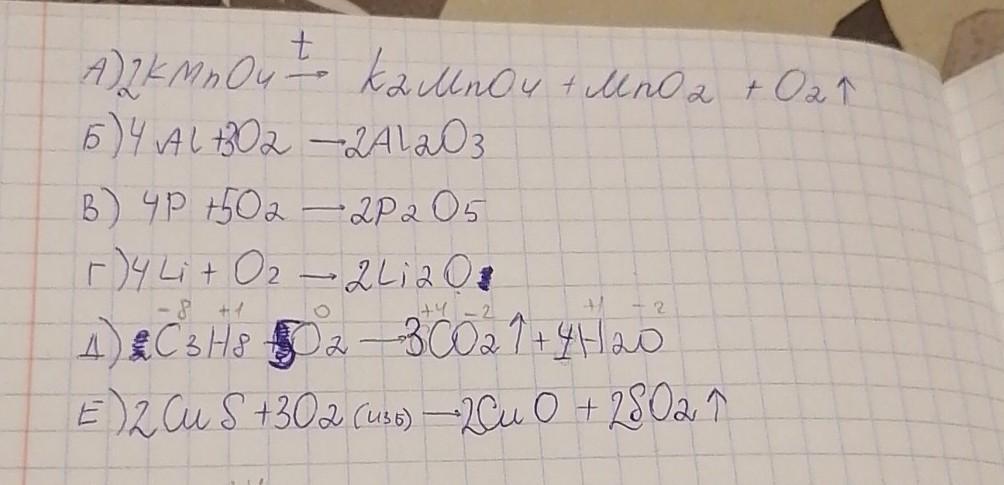 t
А) 2KMnO4 → K2MnO4 + MnO2 + O2↑
Б) 4Al + 3O2 → 2Al2O3
В) 4P + 5O2 → 2P2O5
Г) 4Li + O2 → 2Li2O
-8 +1 0 +4 -2 +1 -2
Д) C3H8 5O2 → 3CO2↑ + 4H2O
Е) 2CuS + 3O2 (изб) → 2CuO + 2SO2↑